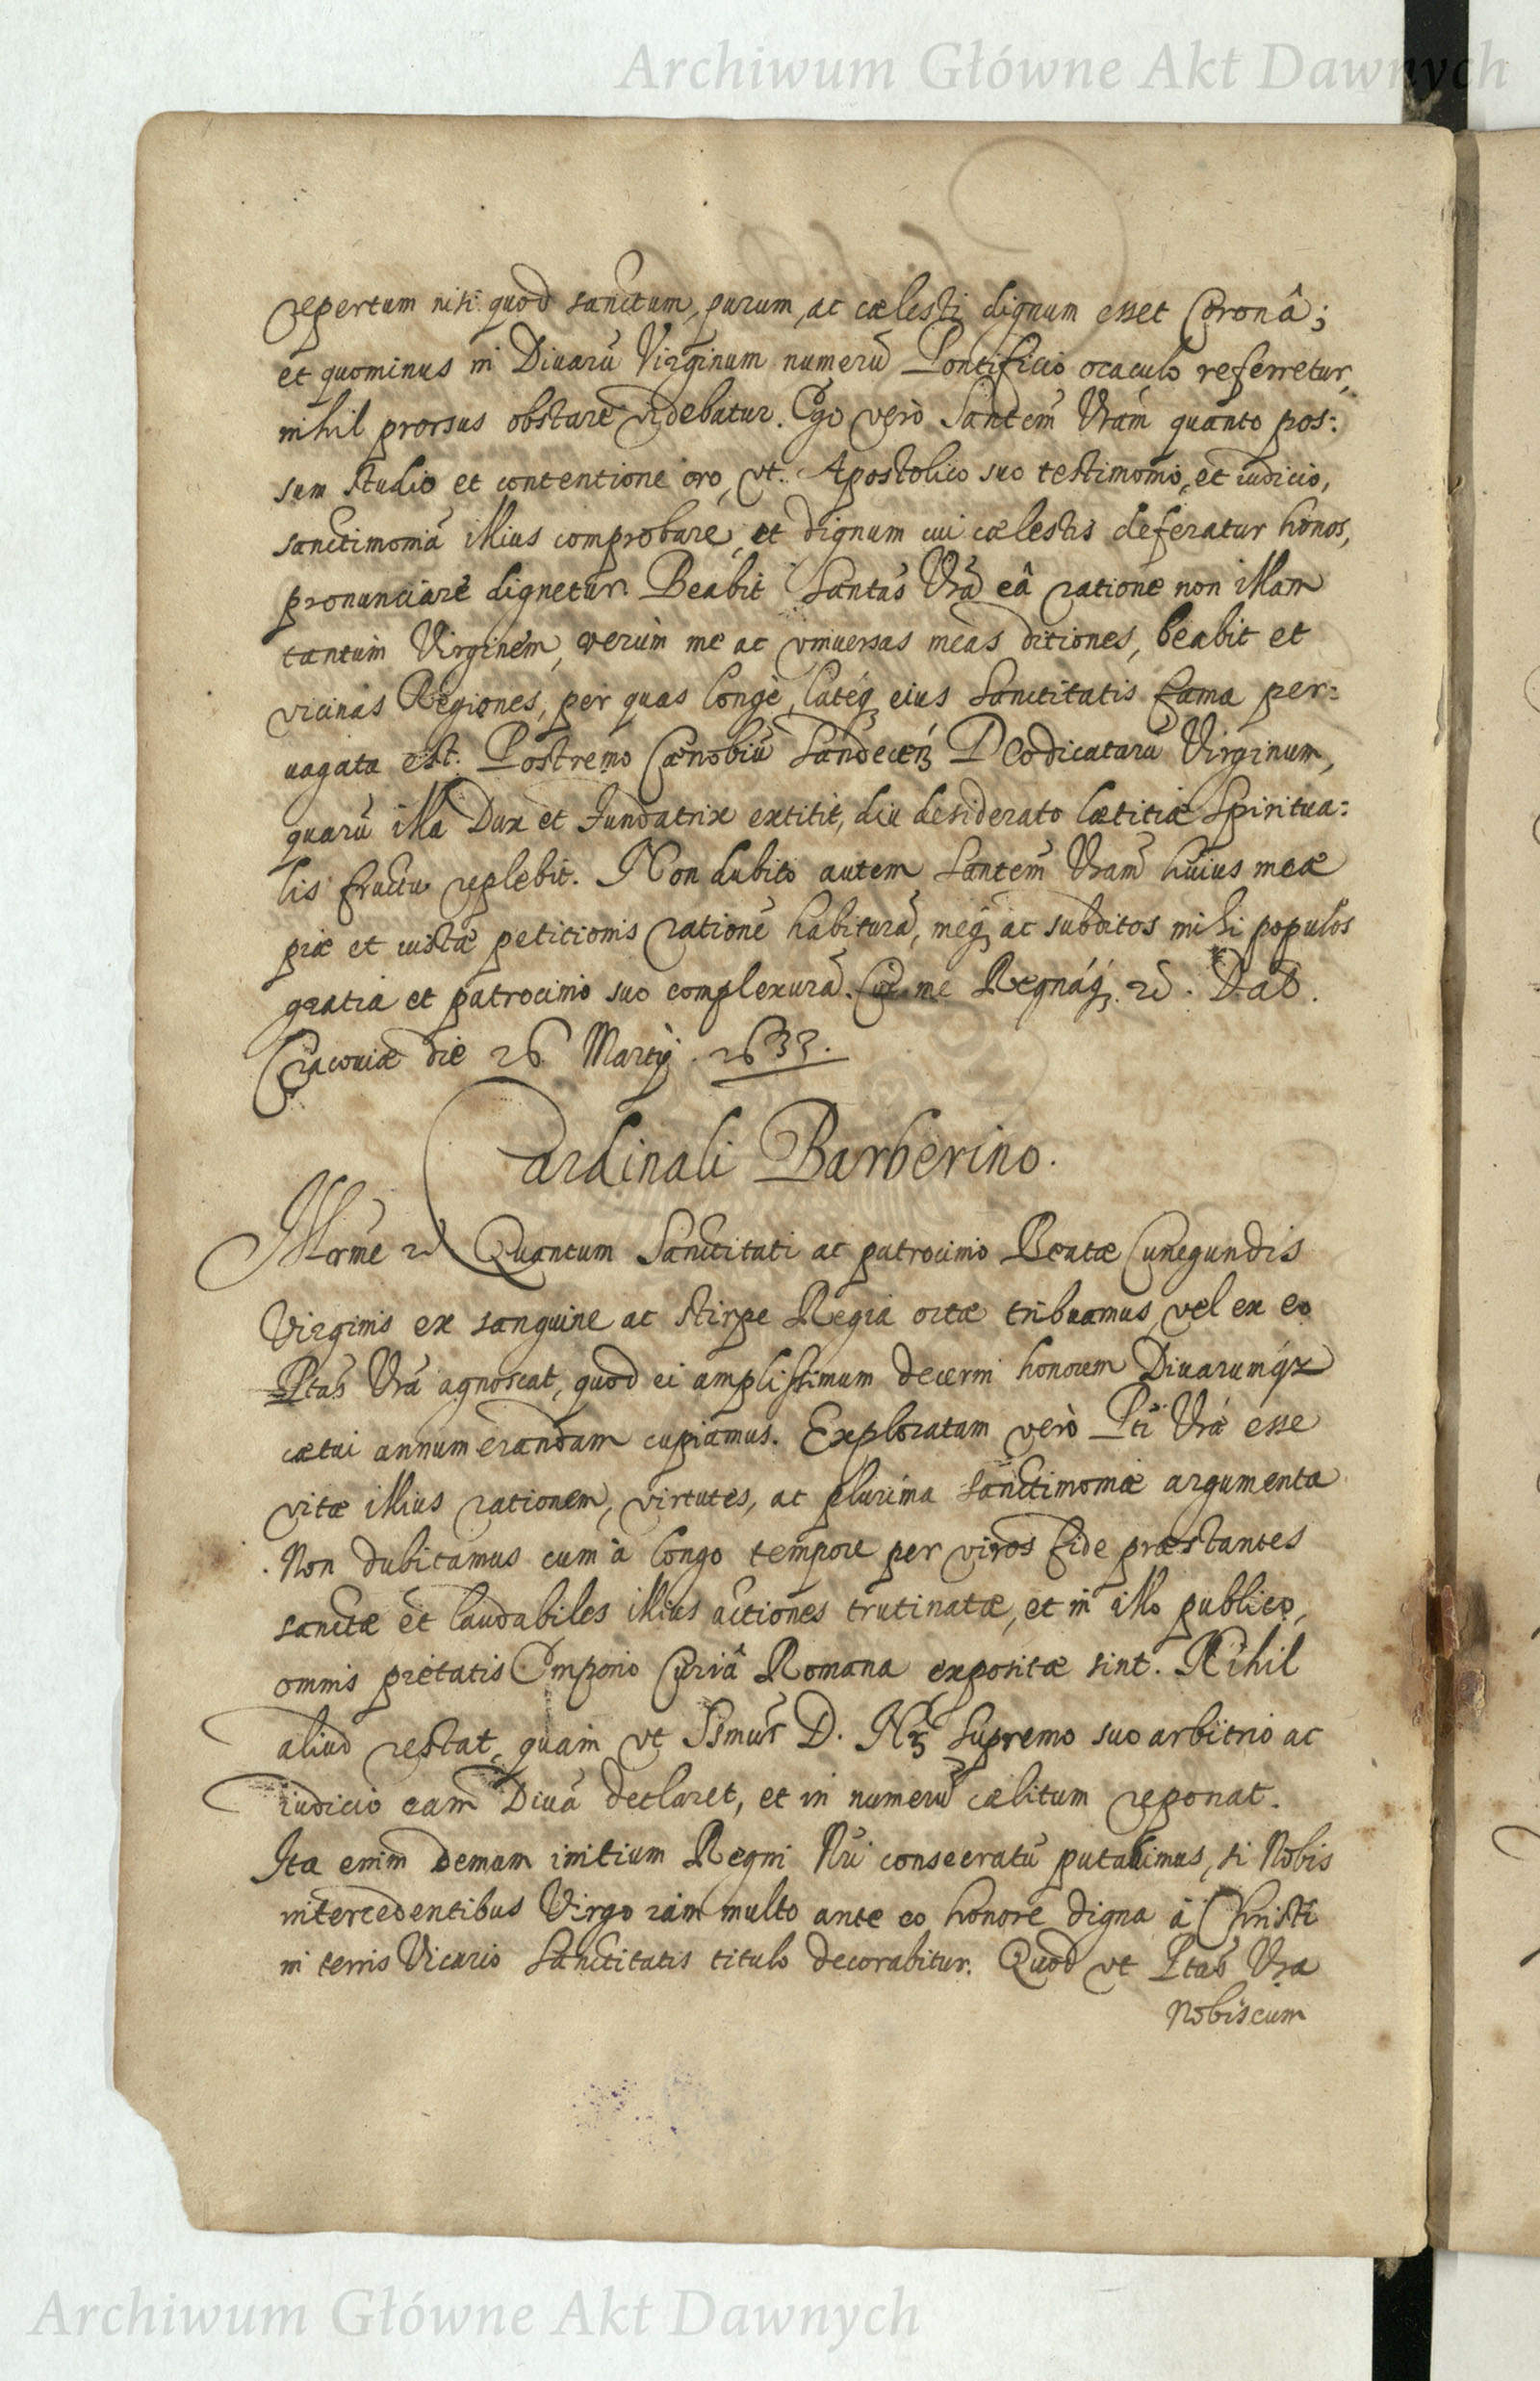 Archiwum Główne Akt Dawnych
repertum nisi quod sanctum, purum, ac cælesti dignum esset Coronâ;
et quominus in Diuarū Virginum numerū Pontificio oraculo referretur,
nihil prorsus obstare videbatur. Ego verò Sanctem̄ Vram̄ quanto pos:
sum studio et contentione oro, vt Apostolico suo testimonio, et iudicio,
sanctimoniā illius comprobare, et dignum cui cælestis deferatur honos,
pronunciare dignetur. Beabit Santas̄ Vrā eâ ratione non illam
tantùm Virginem, verùm me ac vniuersas meas ditiones, beabit et
vicinas Regiones, per quas longè, latéq3 eius Sanctitatis fama per:
uagata est. Postremo Cænobiū Sandecen̄ Deo dicatarū Virginum,
quarū illa Dux et Fundatrix extitit, diu desiderato lætitiæ Spiritua:
lis fructu replebit. Non dubito autem Santem̄ Vram̄ huius meæ
piæ et iustæ petitionis rationē habiturā, meq3 ac subditos mihi populos
gratia et patrocinio suo complexurā. me Regnáq3 Dat.
Cracouiæ die 26 Martÿ. 1633.
Cardinali Barberino.
Illme Quantum Sanctitati ac patrocinio Beatæ Cunegundis
Virginis ex sanguine ac stirpe Regia ortæ tribuamus, vel ex eo
Ptas̄ Vrā agnoscat, quod ei amplissimum decerni honorem Diuarumq3
cætui annumerandam cupiamus. Exploratam verò Pti Vræ esse
vitæ illius rationem, virtutes, ac plurima sanctimoniæ argumenta
Non dubitamus cum à longo tempore per viros fide præstantes
sanctæ et laudabiles illius actiones trutinatæ, et in illo publico,
omnis pietatis Emporio Curiâ Romana expositæ sint. Nihil
aliud restat, quam vt Ssmus̄ D. Nr̄ Supremo suo arbitrio ac
iudicio eam Diuā declaret, et in numerū cælitum reponat.
Ita enim demum initium Regni Nrī consecratū putabimus, si Nobis
intercedentibus Virgo iàm multo ante eo honore digna à Christi
in terris Vicario Sanctitatis titulo decorabitur. Quod vt Ptas̄ Vra
Nobiscum
Archiwum Główne Akt Dawnych